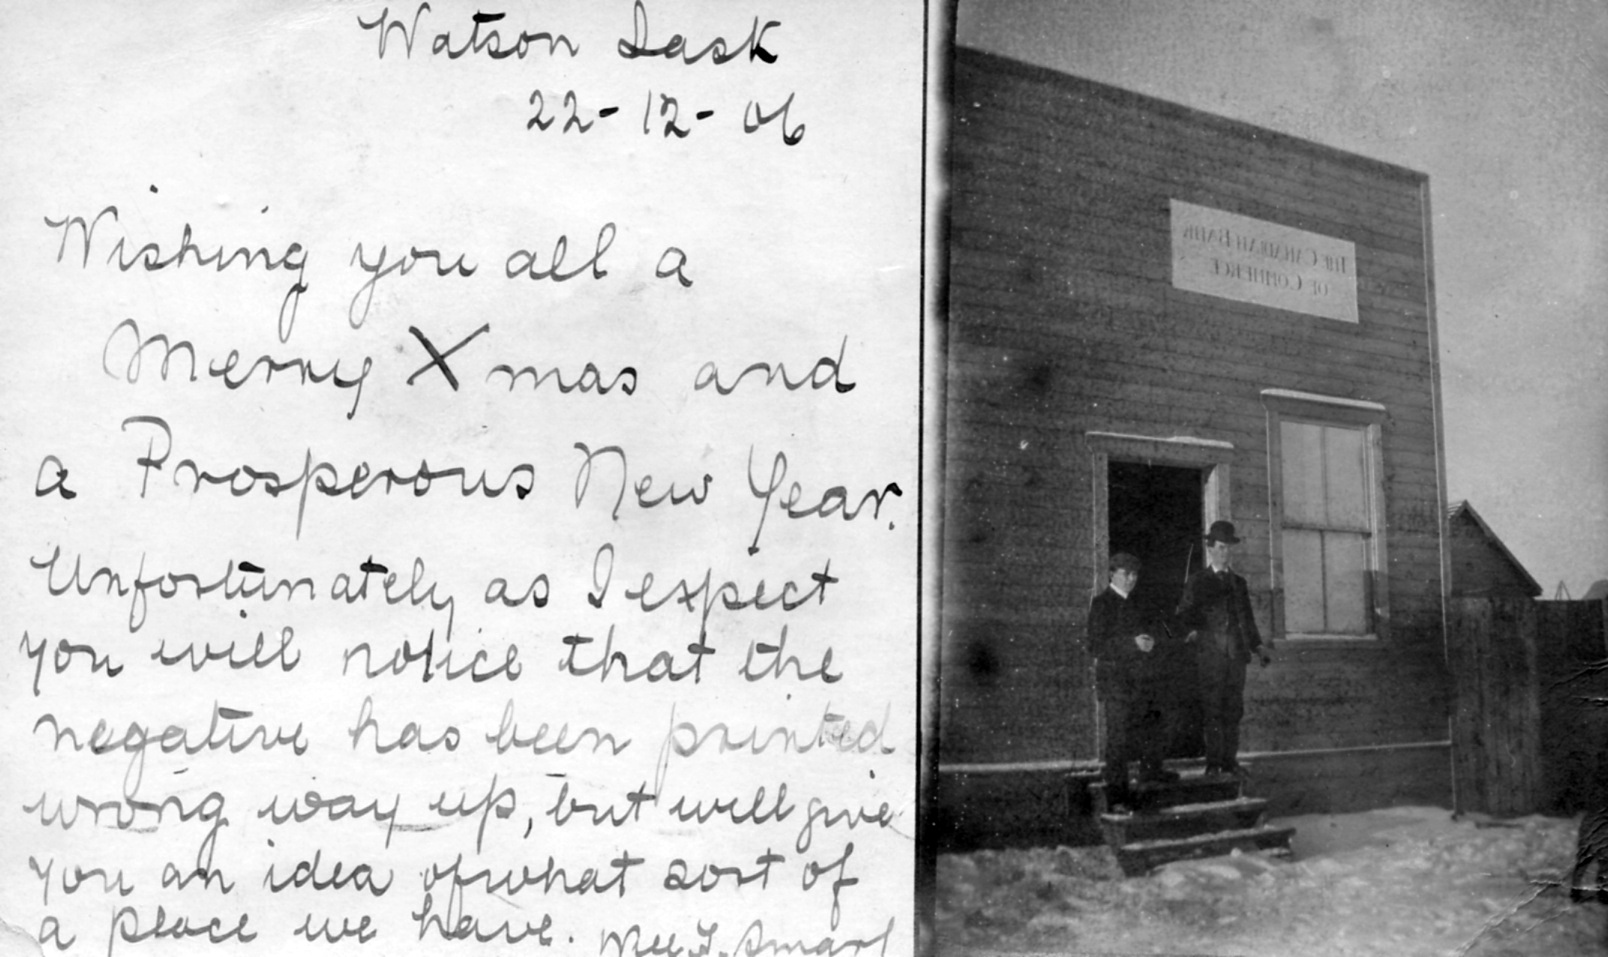 Watson Sask
22-12-06
Wishing you all a
Merry Xmas and
a Prosperous New Year.
Unfortunately as I expect
you will notice that the
negative has been printed
wrong way up, but will give
you an idea of what sort of
a place we have. Smart
THE CANADIAN BANK
OF COMMERCE